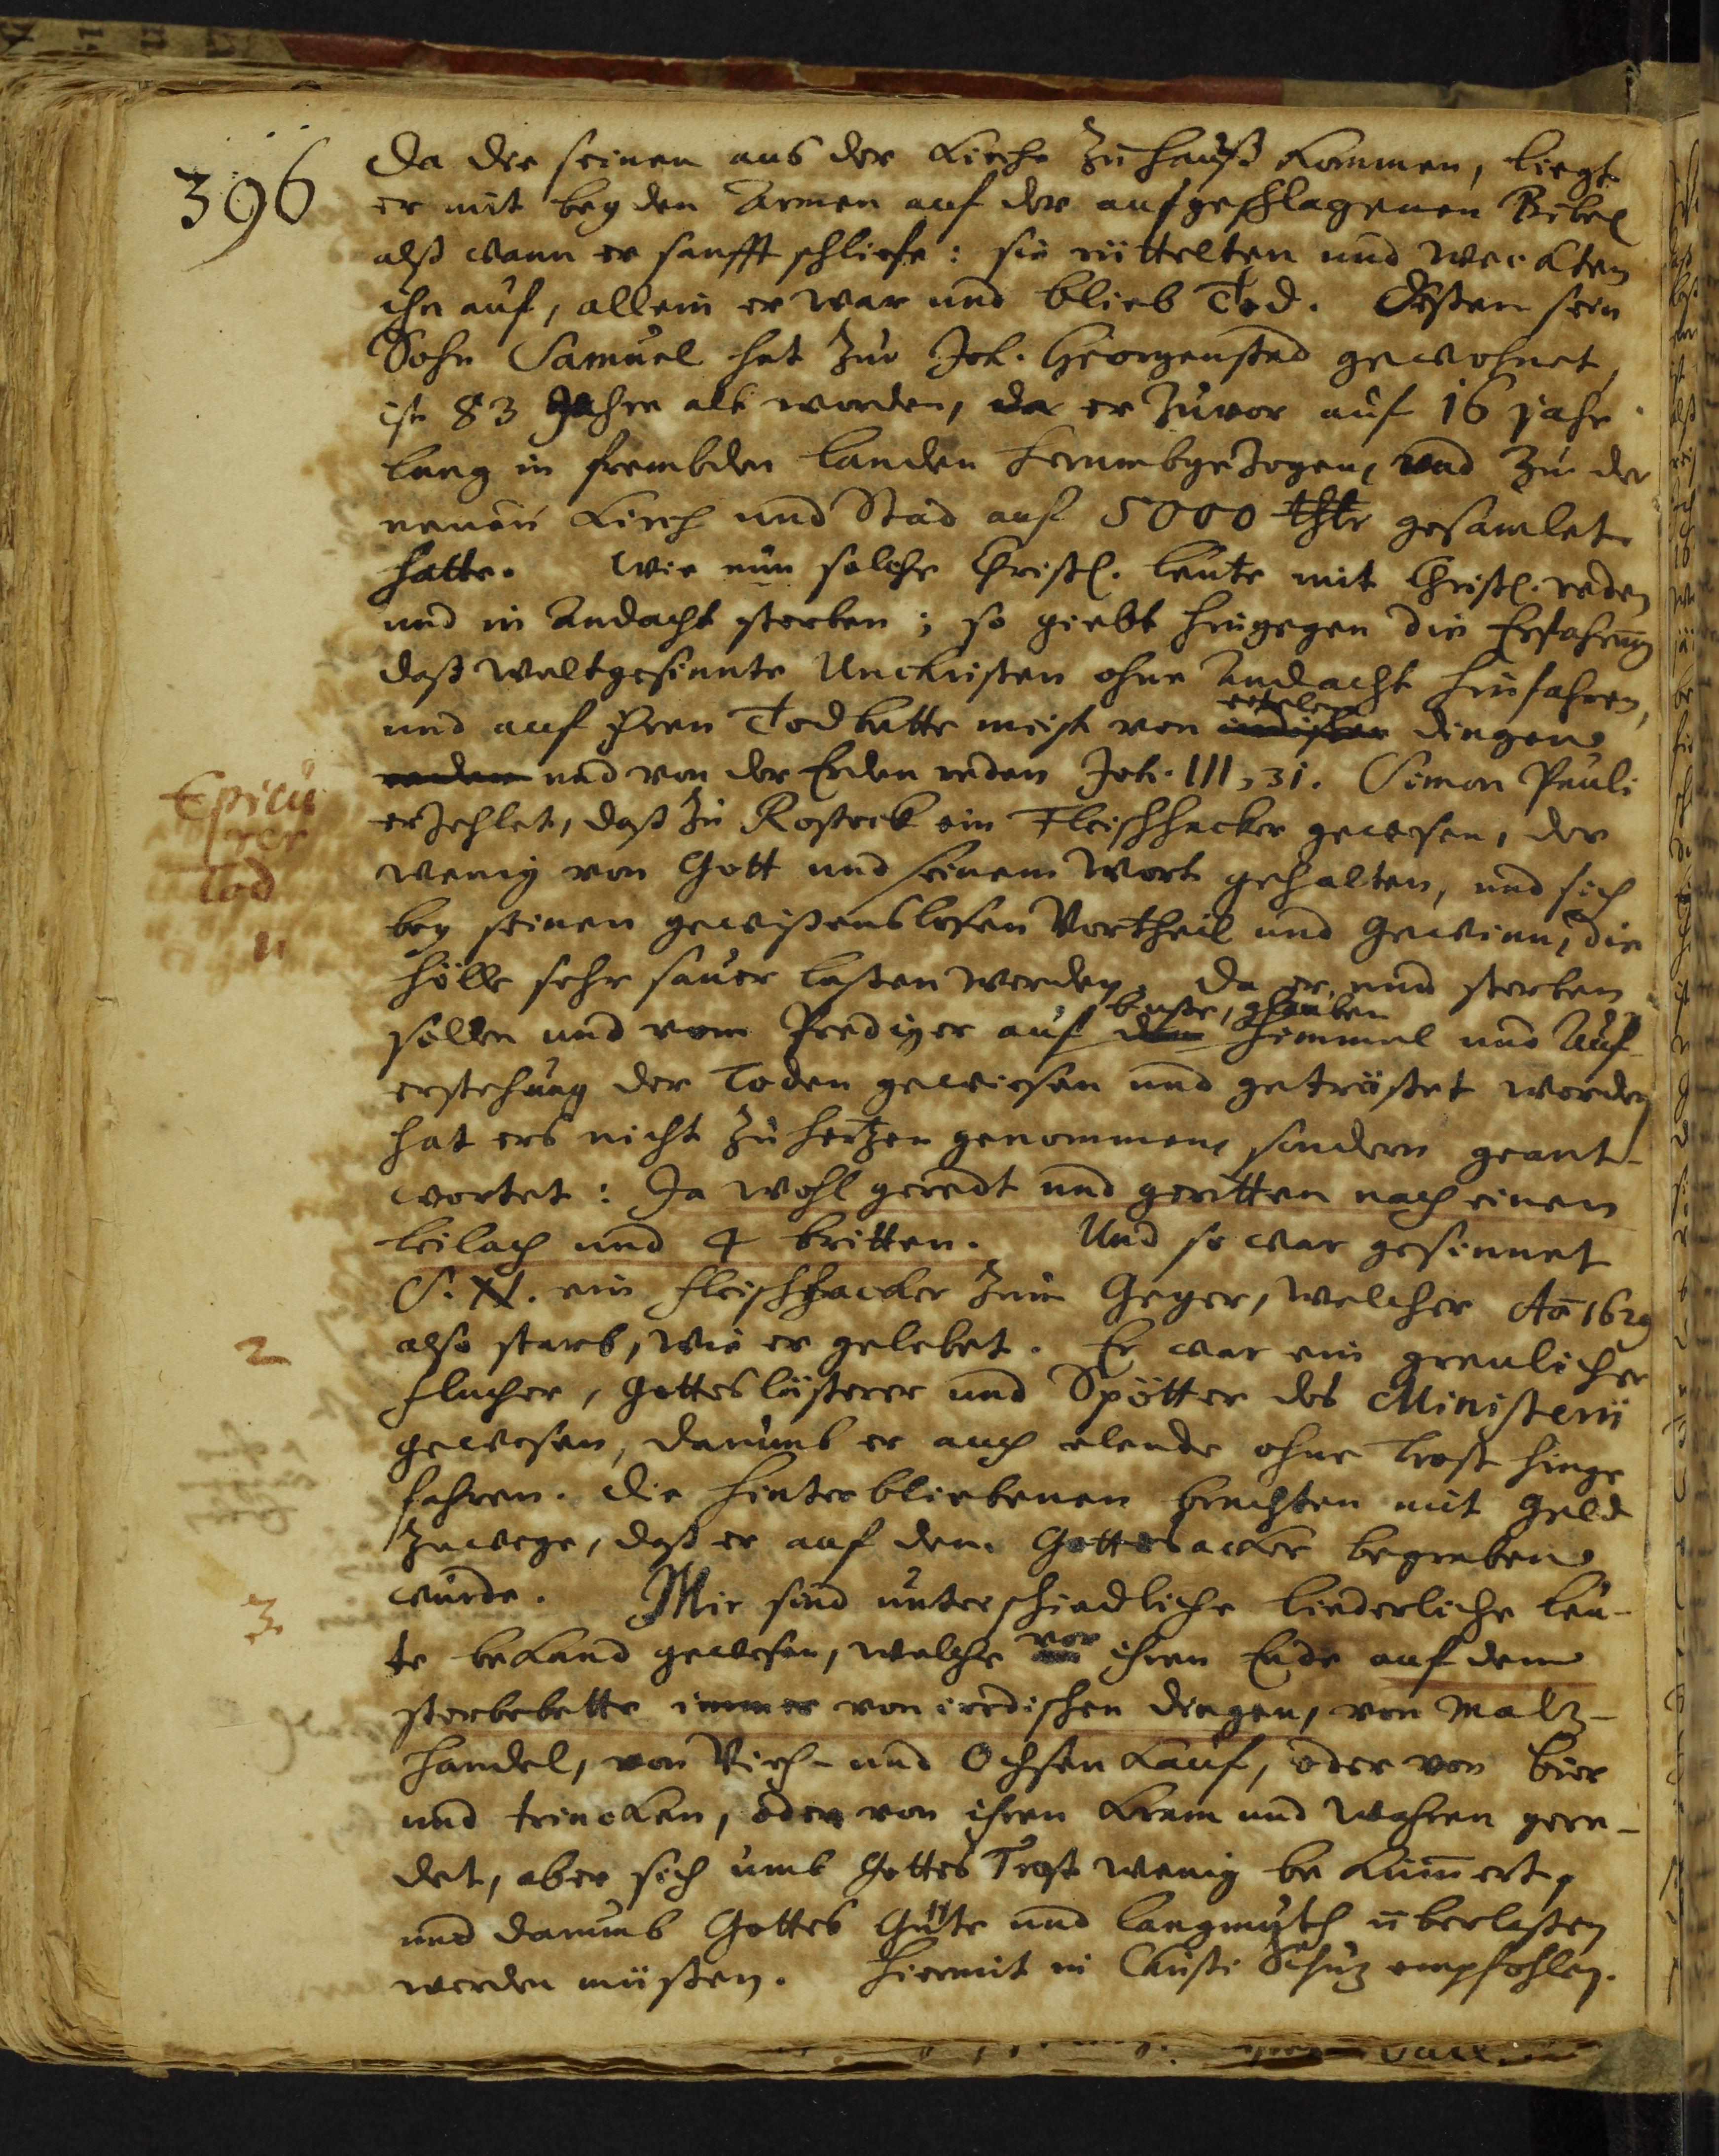 396
da die seinen aus der Kirche zu hauß kommen, liegt
er mit beyden Armen auf der aufgeschlagenen Bibel
alß wann er sanfft schliefe: sie rüttelten und weckten
ihn auf, allein er war und blieb Tod. Dessen sein
Sohn Samuel hat zur Joh. Georgenstad gewohnet,
ist 83 Jahre alt worden, da er zuvor auf 16 jahr
lang in frembden landen herumbgezogen, und zu der
neuen Kirch und Stad auf 5000 thlr gesamlet
hatte. Wie nun solche Christl. leute mit Christl. reden
und in Andacht sterben; so giebt hingegen die Erfahrung
daß weltgesinnte Unchristen ohne Andacht hinfahren,
eitelen
und auf ihren Todbette meist von irdischen dingen
reden und von der Erden reden Joh. III, 31. Simon Pauli
Epicu
rer
Tod
erzehlet, daß zu Rostock ein Fleischhacker gewesen, der
wenig von Gott und seinem Wort gehalten, und sich
bey seinen gewissenslosen Vortheil und Gewinn, die
1
hölle sehr sauer lassen werden. Da er nun sterben
busse, glauben
sollen und vom Prediger auf den Himmel und Auf-
erstehung der Toden gewiesen und getröstet worden
hat ers nicht zu hertzen genommen, sondern geant-
wortet: Ja wohl geredt und geritten nach einem
leilach und 4 britten. Und so war gesinnet
S. N. ein fleischhacker zum Geyer, welcher Ao 1629
2
also starb, wie er gelebet. Er war ein greulicher
flucher, Gotteslästerer und Spötter des Ministerii
gewesen, darumb er auch elende ohne Trost hinge
fahren. Die hinterbliebenen brachten mit Geld
zuwege, daß er auf dem Gottesacker begraben
3
wurde. Mir sind unterschiedliche liederliche leu-
te bekand gewesen, welche vor ihren Ende auf dem
sterbebette immer von irrdischen dingen, von Maltz-
handel, von Vieh- und Ochsen kauf, oder von Bier
und trincken, oder von ihren Kram und Wahren gere-
det, aber sich umb Gottes Trost wenig bekümert,
und darumb Gottes Güte und langmuth überlassen
werden müssen. Hiermit in Christi Schuz empfohlen.